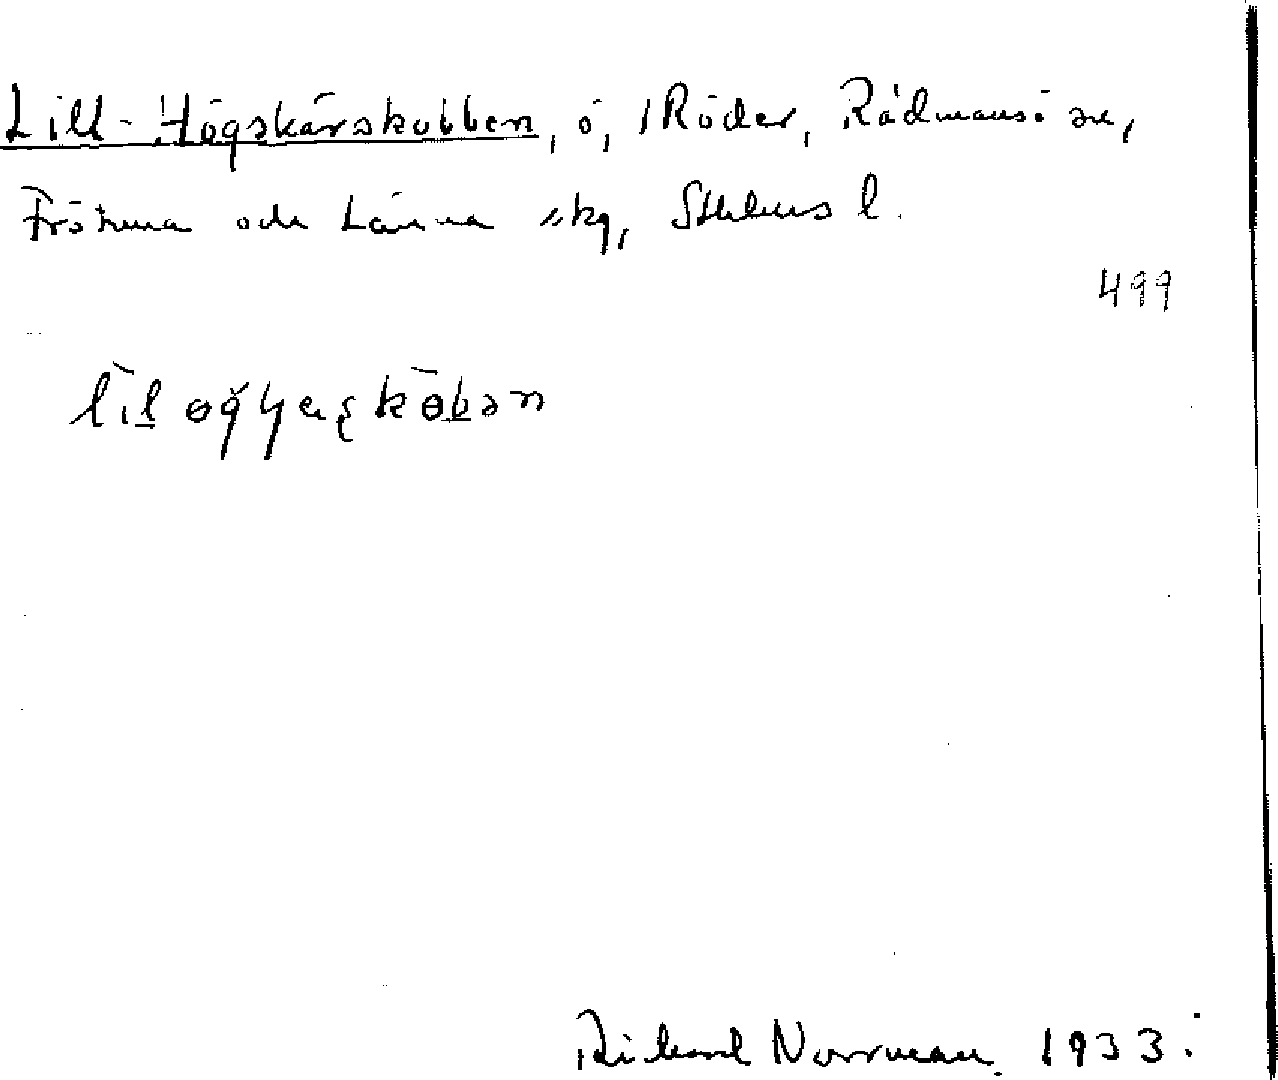 Lill-Högskärskobben, ö, Röder, Rådmansö sn,
Frötuna och Länna skg, Sthlms l.
499
Richard Norrman 1933.